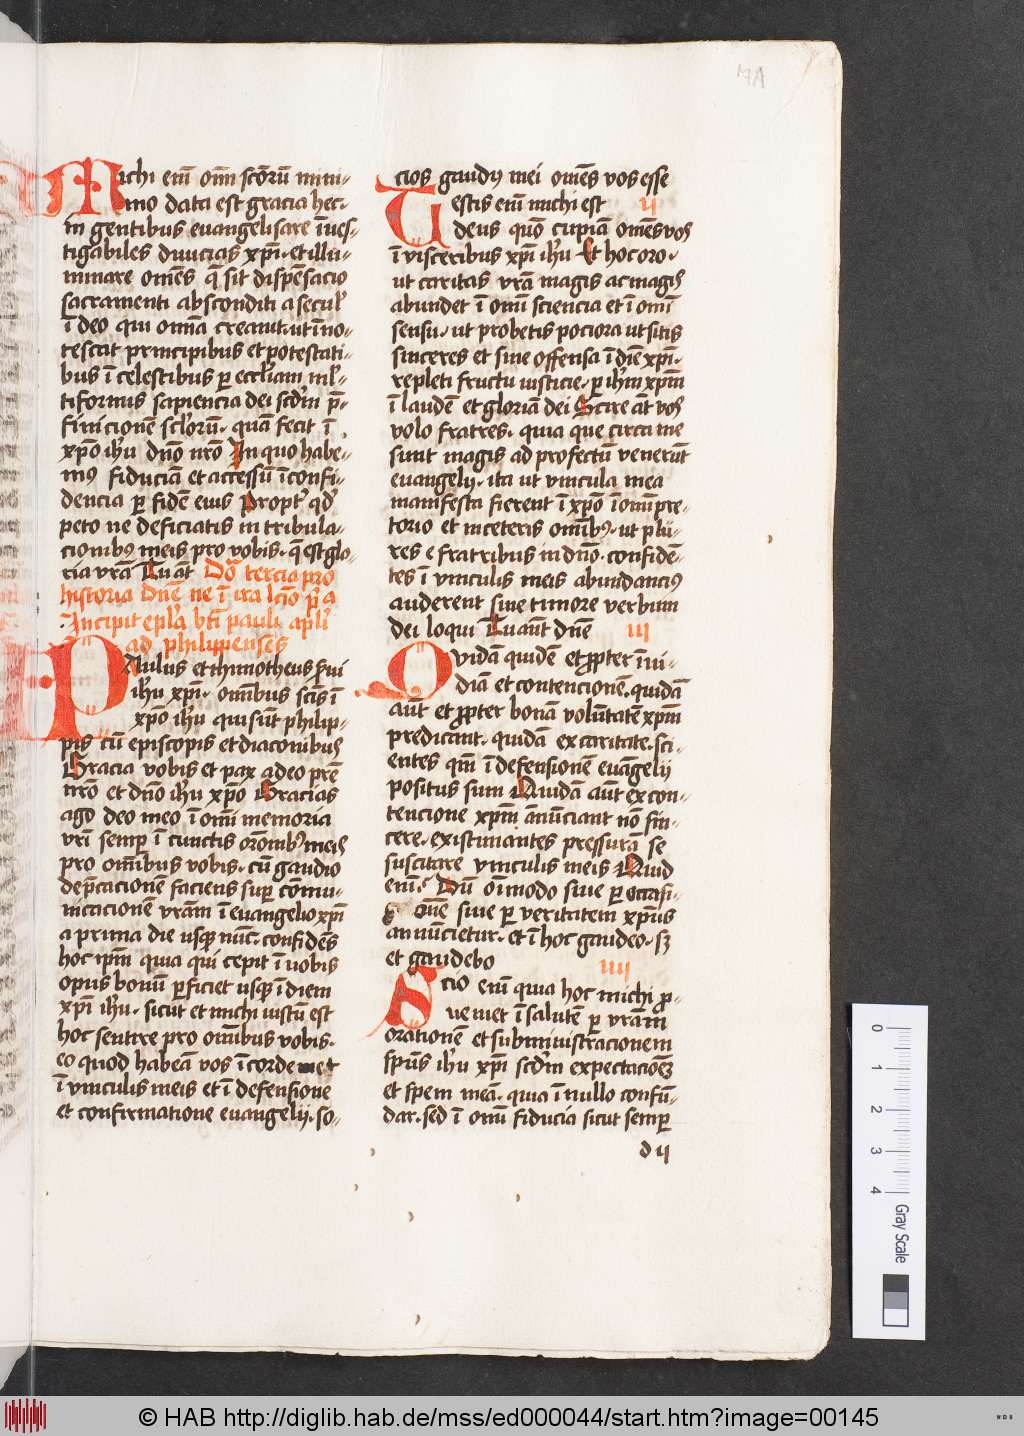 Michi em̄ om̄i sc̄orū mini-
mo data est gracia hec·
in gentibus euangelisare īues-
tigabiles diuicias xp̄i· et illu-
minare om̄es q̄ sit dispēsacio
sacramenti absconditi a secul'
ī deo qui om̄ia creauit· ut īno-
tescat principibus et potestati-
bus ī celestibus ꝑ eccl'iam ml'-
tiformis sapiencia dei scd̄m p̄-
finicionē sc̄lorū· quā fecit ī
xp̄o ih'u dn̄o nr̄o In quo habe-
mꝰ fiduciā et accessū ī confi-
dencia ꝑ fidē eius Propt' qd'
peto ne deficiatis in tribula-
cionibꝰ meis pro vobis· q̄ est glo-
ria vr̄a Tu aūt Do͞ tercia pro
historia Dn̄e ne ī ira lc̄io p'a
Incipit ep'la bt̄i pauli apl'i
ad philippenses
PAulus et thimotheus s'ui
ih'u xp̄i· omībus sc̄is ī
xp̄o ih'u qui sūt philip-
pis cū episcopis et diaconibus
Gracia vobis et pax a deo pr̄e
nr̄o et dn̄o ih'u xp̄o Gracias
ago deo meo ī om̄i memoria
vr̄i semꝑ ī cunctis or̄onibꝰ meis
pro omībus vobis· cū gaudio
dep̄cacionē faciens suꝑ cōmu-
nicacionē vr̄am ī euangelio xp̄i
a prima die usqꝫ nūc· confidēs
hoc ip̄m quia qui cepit ī uobis
opus bonū ꝑficiet usqꝫ ī diem
xp̄i ih'u· sicut et michi iustū est
hoc sentire pro omībus vobis·
eo quod habeā vos ī corde et
ī vinculis meis et ī defensione
et confirmatione euangelij· so-
cios gaudiꝰ mei om̄es vos esse
Testis em̄ michi est ij
deus quō cupiā om̄es vos
ī visceribus xp̄i ih'u Et hoc oro·
ut caritas vr̄a magis ac magis
abundet ī om̄i sciencia et ī om̄i
sensu· ut probetis pociora ut sitis
sinceres et sine offensa ī diē xp̄i·
repleti fructu iusticie· ꝑ ih'm xp̄m
ī laudē et gloriā dei Scire aūt vos
volo fratres· quia que circa me
sunt magis ad profectū venerūt
euangelij· ita ut vincula mea
manifesta fierent ī xp̄o ī om̄i pre-
torio et in ceteris om̄ibꝰ· ut plu-
res e fratribus in dn̄o· confidē-
tes ī vinculis meis abundanciꝰ
auderent sine timore verbum
dei loqui Tu aūt dn̄e iij
Quidā quidē et ꝓpter īui-
diā et contencionē· quidā
aūt et ꝓpter bonā volūtatē xp̄m
predicant· quidā ex caritate· sci-
entes qm̄ ī defensionē euāgelij
positus sum Quidā aūt ex con-
tencione xp̄m ānūciant nō sin-
cere· existimantes pressurā se
suscitare vinculis meis Quid
enī Dū oīmodo siue ꝑ occasi-
onē siue ꝑ veritatem xp̄us
annūcietur· et ī hoc gaudeo· sꝫ
et gaudebo iiij
Scio em̄ quia hoc michi ꝓ-
ueniet ī salutē ꝑ vr̄am
orationē et subministracionem
sp̄us ih'u xp̄i scd̄m expectacionē
et spem meā· quia ī nullo confū-
dar· sed ī om̄i fiducia sicut semꝑ
d ij
0 1 2 3 4
Gray Scale
© HAB http://diglib.hab.de/mss/ed000044/start.htm?image=00145